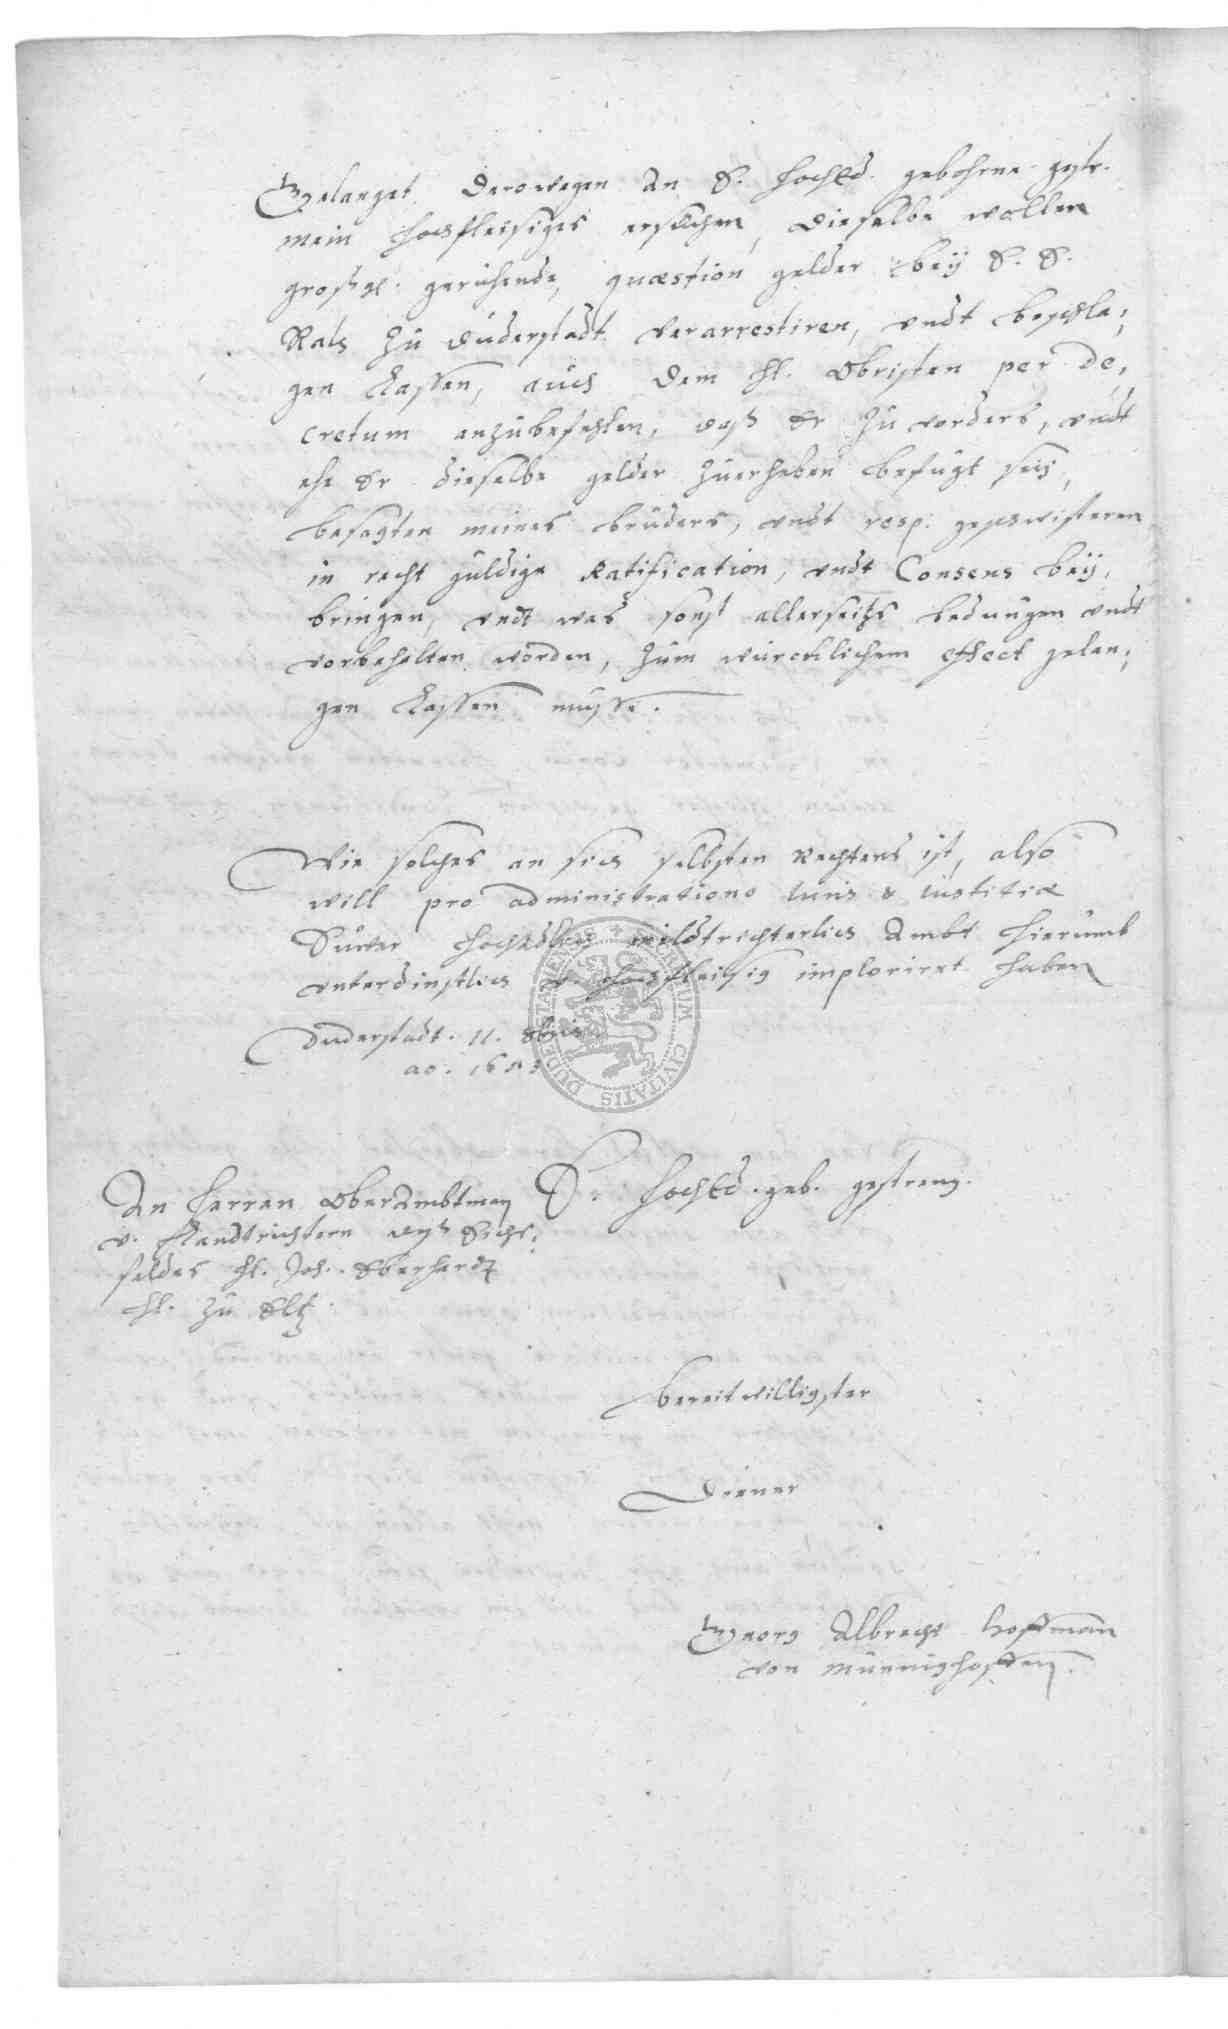 Gelanget derowegen an E. hochEd. gebohrne gestr.
mein hochfleissiges ersuchen, dieselbe wollen
großg. geruhende, quæstion gelder bey E. E.
Rats zu Duderstadt verarrestiren, undt beschla-,
gen lassen, auch dem H. Obristen per de-,
cretum anzubefehlen, daß Er zu vorders, undt
ehe Er dieselbe gelder zuerheben befugt sey,
besagten meines bruders, undt resp. geschwisteren
in recht guldige Ratification, undt Consens bey,
bringen, undt was sonst allerseitzs bedungen undt
vorbehalten worden, zum würcklichem effect gelan-,
gen lassen müsse.
Wie solches an sich selbsten Rechtens ist, also
will pro administratione Iuris & Iustitiæ
Euwer hochadlich landtrichterlich Ambt hierumb
unterdinstlich v. hochfleissig implorirt haben
Duderstadt. 11. 8bris
ao. 1653
E. hochEd. geb. gestreng.
An Herren OberAmbtman
v. Landtrichtern deß Eichs-,
feldes H. Joh. Eberhardt
H. zu Eltz
bereitwilligster
Diener
Georg Albrecht Hoffman
von Münnighoffen.
DUDERSTADIENSIS CIVITATIS